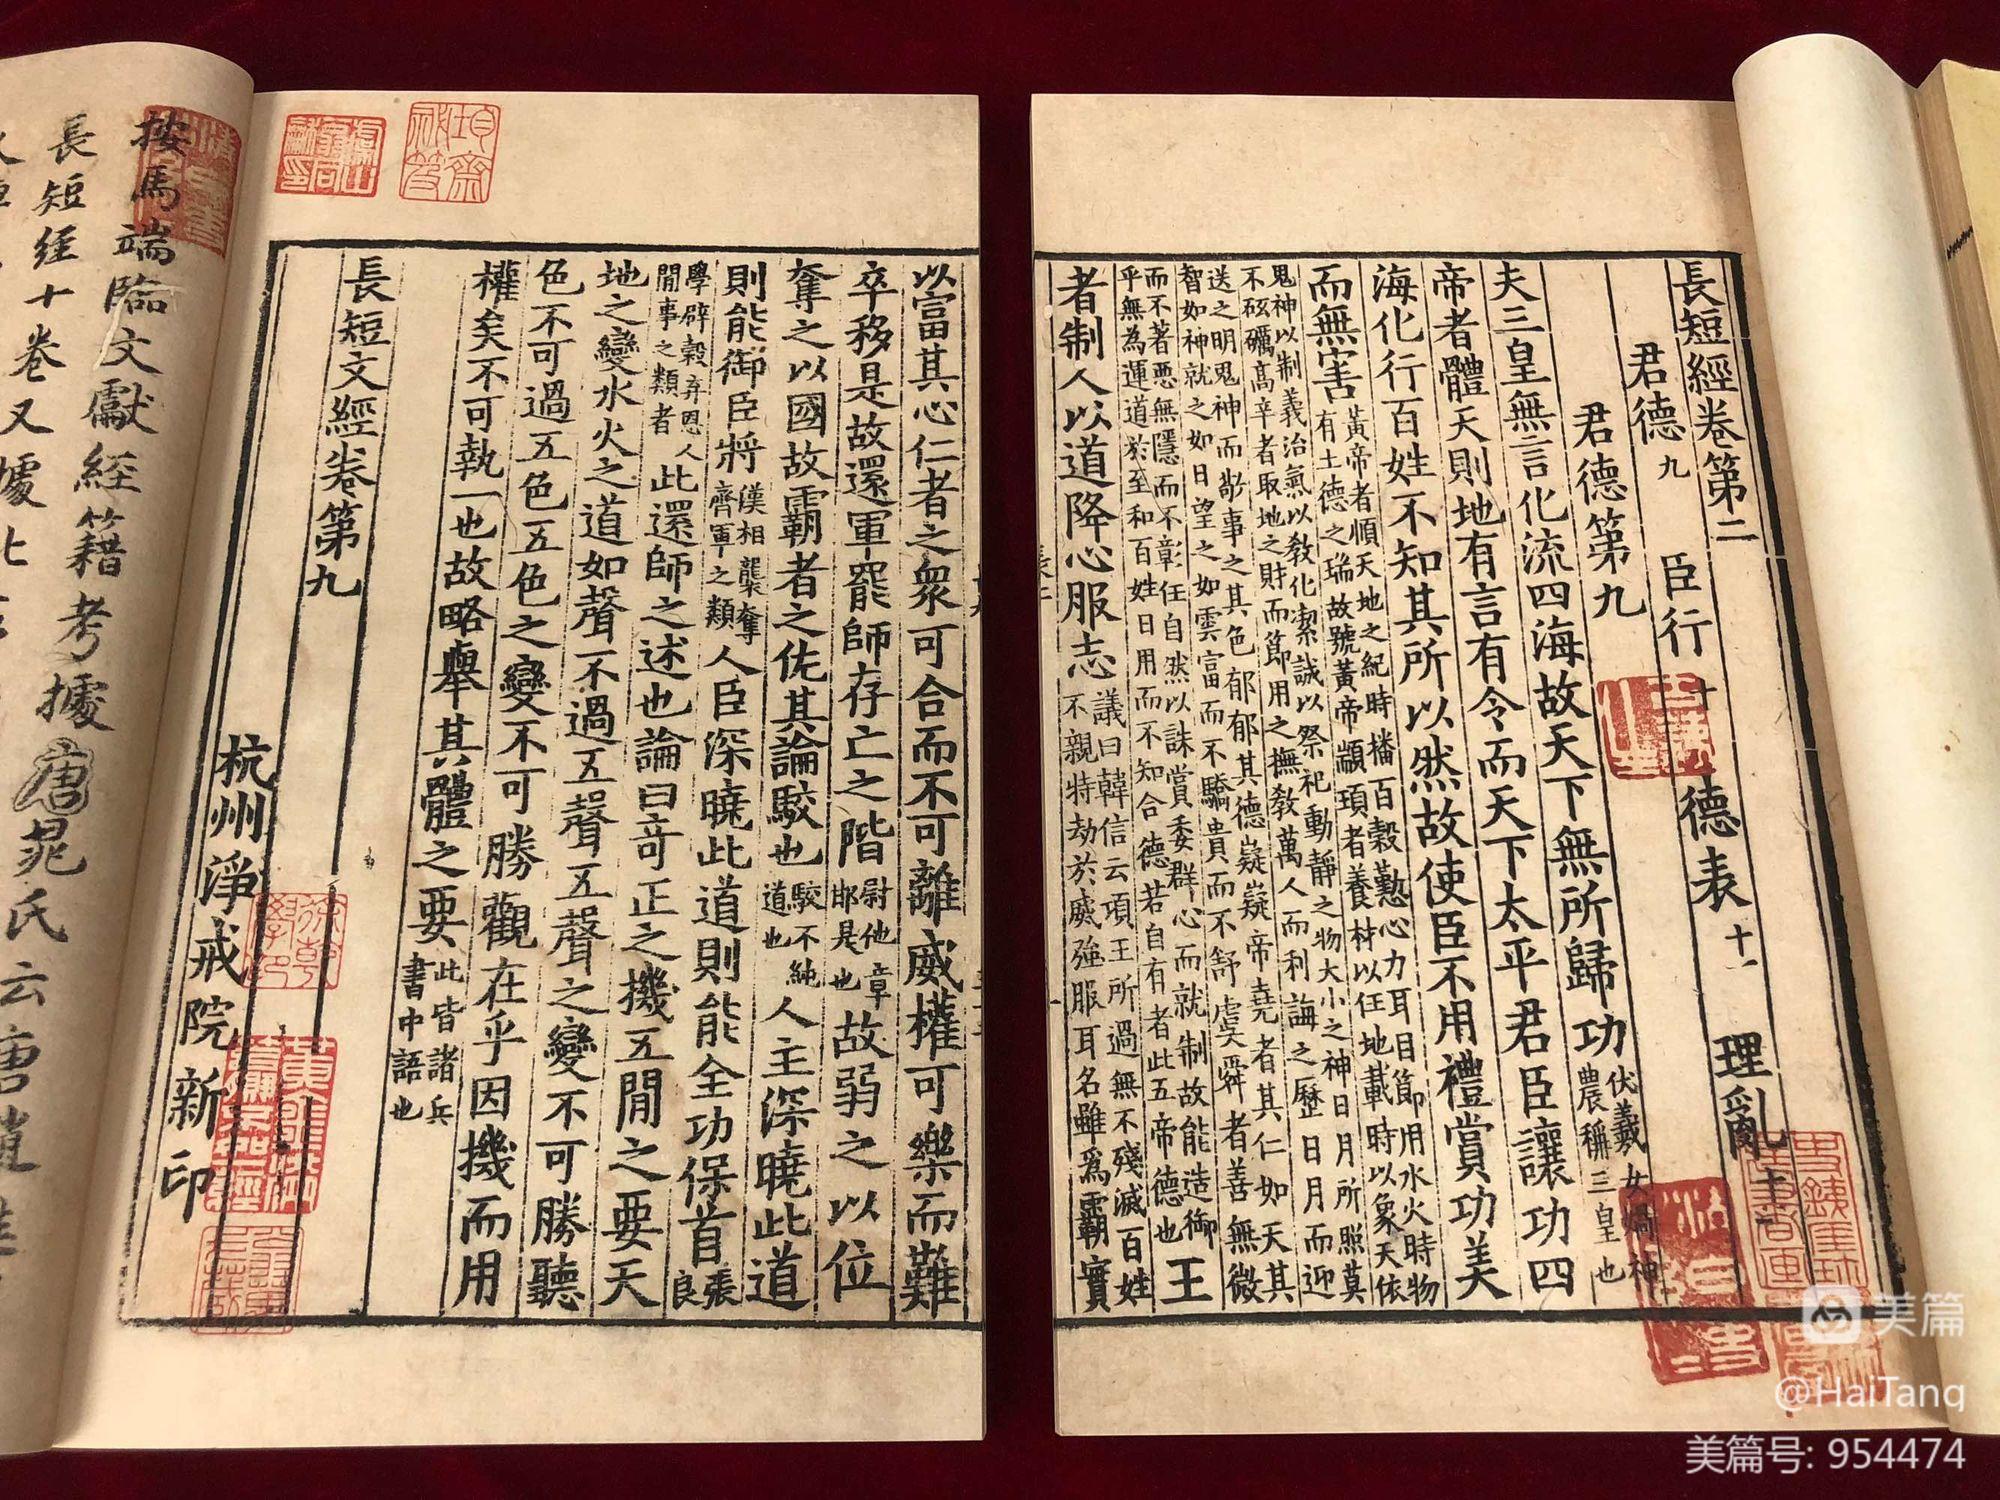 長短經卷第二
君德九 臣行十 德表十一 理亂十二
君德第九
夫三皇無言化流四海故天下無所歸功伏羲女媧神農稱三皇也
帝者體天則地有言有令而天下太平君臣讓功四
海化行百姓不知其所以然故使臣不用禮賞功美
而無害黃帝者順天地之紀時播百穀勤心力耳目節用水火時物有土德之瑞故號黃帝顓頊者養材以任地載時以象天依
鬼神以制義治氣以教化潔誠以祭祀動靜之物大小之神日月所照莫不砥礪高辛者取地之財而節用之撫教萬人而利誨之歷日月而迎
送之明鬼神而敬事之其色郁郁其德嶷嶷帝堯者其仁如天其智如神就之如日望之如雲富而不驕貴而不舒虞舜者善無微
而不著惡無隱而不彰任自然以誅賞委群心而就制故能造御乎無為運道於至和百姓日用而不知合德若自有者此五帝德也王
者制人以道降心服志議曰韓信云項王所過無不殘滅百姓不親特劫於威強服耳名雖爲霸實
以富其心仁者之衆可合而不可離威權可樂而難
卒移是故還軍罷師存亡之階尉他章邯是也故弱之以位
奪之以國故霸者之佐其論駮也駮不純道也人主深曉此道
則能御臣將漢相襲奪齊軍之類人臣深曉此道則能全功保首張良
學辟穀弃恩人閒事之類者此還師之述也論曰竒正之機五閒之要天
地之變水火之道如聲不過五聲五聲之變不可勝聽
色不可過五色五色之變不可勝觀在乎因機而用
權矣不可執一也故略舉其體之要此皆諸兵書中語也
長短文經卷第九
杭州淨戒院新印
按馬端臨文獻經籍考據唐晁氏云唐趙
長短經十卷又據北
美篇
@HaiTanq
美篇号: 954474